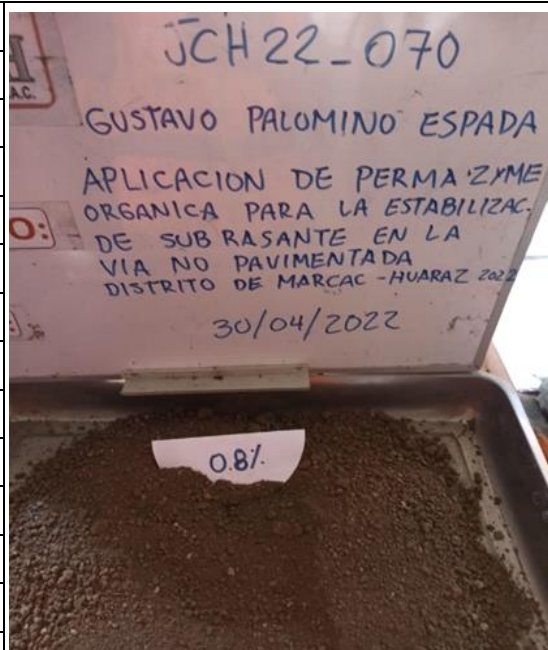 JCH22_070
A.C.
GUSTAVO PALOMINO ESPADA
APLICACION DE PERMA'ZYME
ORGANICA PARA LA ESTABILIZAC.
O:
DE SUB RASANTE EN LA
VIA NO PAVIMENTADA
DISTRITO DE MARCAC - HUARAZ 2022
30/04/2022
0.8%